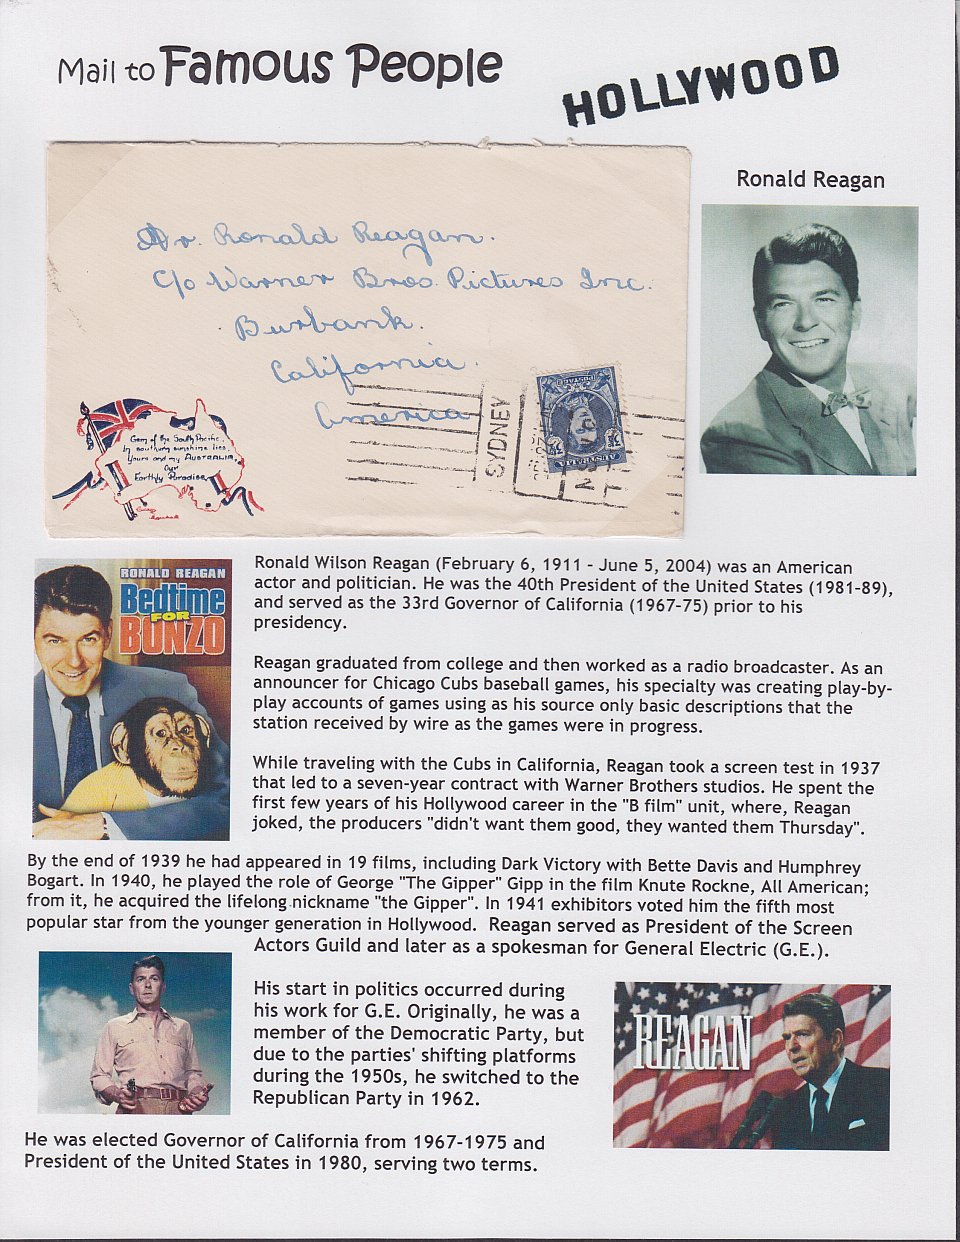 Mail to Famous People
HOLLYWOOD
Ronald Reagan
Mr. Ronald Reagan.
C/o Warner Bros. Pictures Inc.
Burbank.
California.
America
SYDNEY
POSTAGE
AUSTRALIA
Gem of the South Pacific,
In southern sunshine lies,
Yours and my AUSTRALIA,
Our
Earthly Paradise
RONALD REAGAN
Bedtime
FOR
BONZO
Ronald Wilson Reagan (February 6, 1911 - June 5, 2004) was an American
actor and politician. He was the 40th President of the United States (1981-89),
and served as the 33rd Governor of California (1967-75) prior to his
presidency.
Reagan graduated from college and then worked as a radio broadcaster. As an
announcer for Chicago Cubs baseball games, his specialty was creating play-by-
play accounts of games using as his source only basic descriptions that the
station received by wire as the games were in progress.
While traveling with the Cubs in California, Reagan took a screen test in 1937
that led to a seven-year contract with Warner Brothers studios. He spent the
first few years of his Hollywood career in the "B film" unit, where, Reagan
joked, the producers "didn't want them good, they wanted them Thursday".
By the end of 1939 he had appeared in 19 films, including Dark Victory with Bette Davis and Humphrey
Bogart. In 1940, he played the role of George "The Gipper" Gipp in the film Knute Rockne, All American;
from it, he acquired the lifelong nickname "the Gipper". In 1941 exhibitors voted him the fifth most
popular star from the younger generation in Hollywood. Reagan served as President of the Screen
Actors Guild and later as a spokesman for General Electric (G.E.).
His start in politics occurred during
his work for G.E. Originally, he was a
member of the Democratic Party, but
due to the parties' shifting platforms
during the 1950s, he switched to the
Republican Party in 1962.
REAGAN
He was elected Governor of California from 1967-1975 and
President of the United States in 1980, serving two terms.